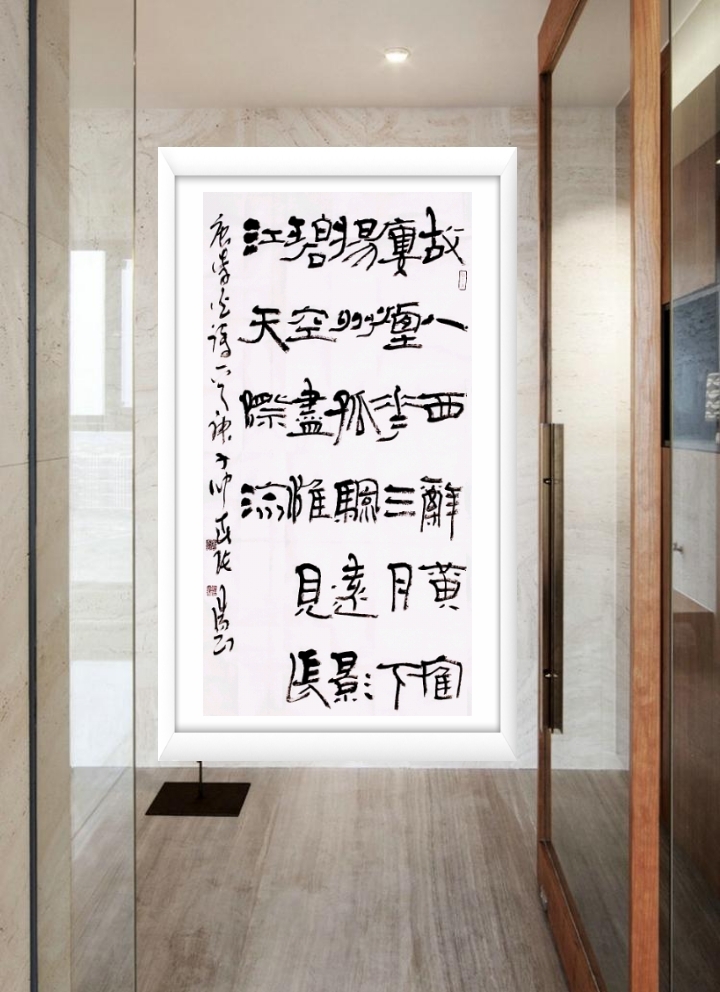 故人西辭黃隺
樓煙花三月下
揚州孤颿遠影
碧空盡惟見長
江天際流
唐李白詩一首庚子仲春